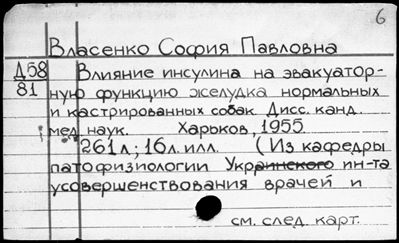 6
Власенко София Павловна
Д58 Влияние инсулина на эвакуатор-
81 ную функцию желудка нормальных
и кастрированных собак Дисс. канд.
мед. наук. Харьков, 1955
261л; 16л. илл. (Из кафедры
патофизиологии Украинского ин-та
усовершенствования врачей и
см. след. карт.